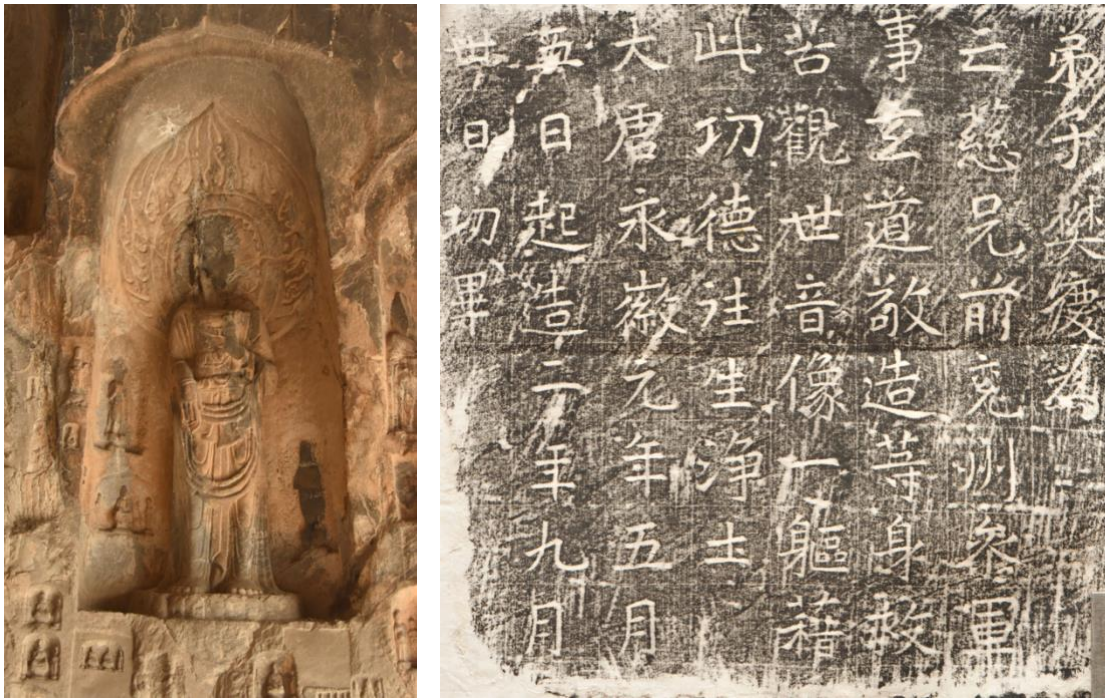 弟子樊慶為
亡慈兄前兗州參軍
事玄道敬造等身救
苦觀世音像一軀藉
此功德往生淨土
大唐永徽元年五月
日起造二年九月
卅日功畢